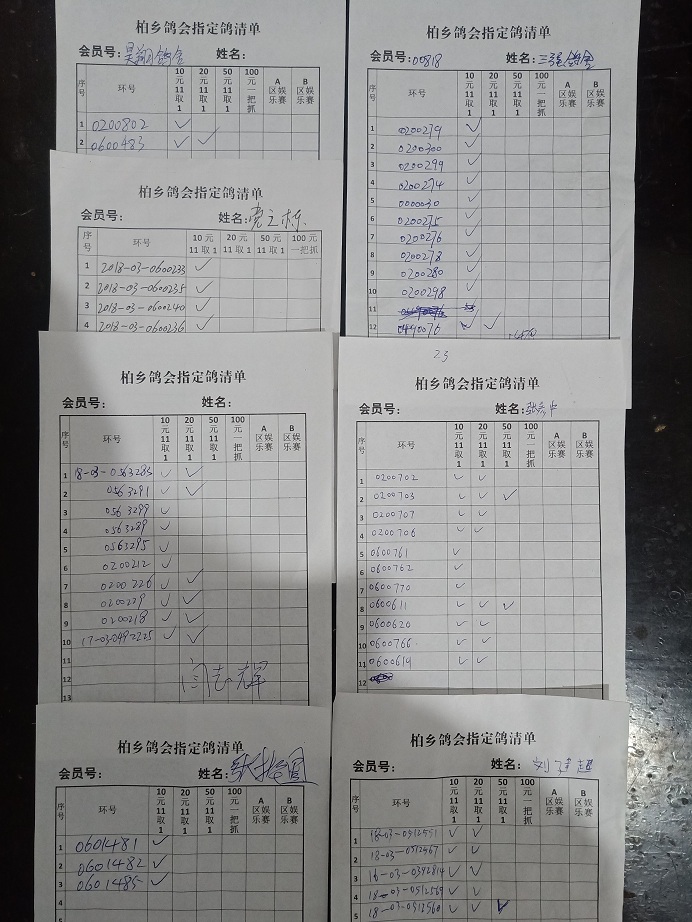 柏乡鸽会指定鸽清单
会员号：昊翔鸽舍 姓名：
序号 环号 10元11取1 20元11取1 50元11取1 100元一把抓 A区娱乐赛 B区娱乐赛
1 0200802 ✓
2 0600483 ✓ ✓
柏乡鸽会指定鸽清单
会员号：05818 姓名：三强鸽舍
序号 环号 10元11取1 20元11取1 50元11取1 100元一把抓 A区娱乐赛 B区娱乐赛
1 0200279 ✓
2 0200300 ✓
3 0200299 ✓
4 0200274 ✓
5 0000030 ✓
6 0200275 ✓
7 0200276 ✓
8 0200278 ✓
9 0200280 ✓
10 0200298 ✓
11
12 0440076 ✓ ✓
23
柏乡鸽会指定鸽清单
会员号： 姓名：
序号 环号 10元11取1 20元11取1 50元11取1 100元一把抓
1 2018-03-0600233 ✓
2 2018-03-0600235 ✓
3 2018-03-0600240 ✓
4 2018-03-0600236 ✓
柏乡鸽会指定鸽清单
会员号： 姓名：
序号 环号 10元11取1 20元11取1 50元11取1 100元一把抓 A区娱乐赛 B区娱乐赛
1 18-03-0563285 ✓ ✓
2 0563291 ✓ ✓
3 0563299 ✓
4 0563289 ✓
5 0563295 ✓
6 0200212 ✓
7 0200226 ✓ ✓
8 0200229 ✓ ✓
9 0200218 ✓ ✓
10 17-03-0492225 ✓ ✓
11
12 闫志辉
13
柏乡鸽会指定鸽清单
会员号： 姓名：张彦中
序号 环号 10元11取1 20元11取1 50元11取1 100元一把抓 A区娱乐赛 B区娱乐赛
1 0200702 ✓ ✓
2 0200703 ✓ ✓ ✓
3 0200707 ✓ ✓
4 0200706 ✓ ✓
5 0600761 ✓
6 0600762 ✓
7 0600770 ✓
8 0600611 ✓ ✓ ✓
9 0600620 ✓ ✓
10 0600766 ✓ ✓
11 0600619 ✓ ✓
12
柏乡鸽会指定鸽清单
会员号： 姓名：
序号 环号 10元11取1 20元11取1 50元11取1 100元一把抓 A区娱乐赛 B区娱乐赛
1 0601481 ✓
2 0601482 ✓
3 0601485 ✓
4
柏乡鸽会指定鸽清单
会员号： 姓名：刘建超
序号 环号 10元11取1 20元11取1 50元11取1 100元一把抓 A区娱乐赛 B区娱乐赛
1 18-03-0512551 ✓ ✓
2 18-03-0512567 ✓ ✓
3 16-03-0392814 ✓ ✓
4 18-03-0512569 ✓ ✓
5 18-03-0512560 ✓ ✓ ✓